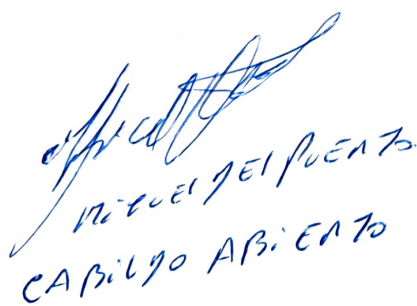 Miguel Del Puerto
CABilDo ABiERTO